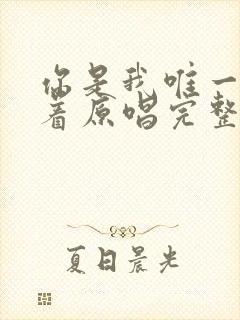 你是我唯一
着原唱完整
夏日晨光